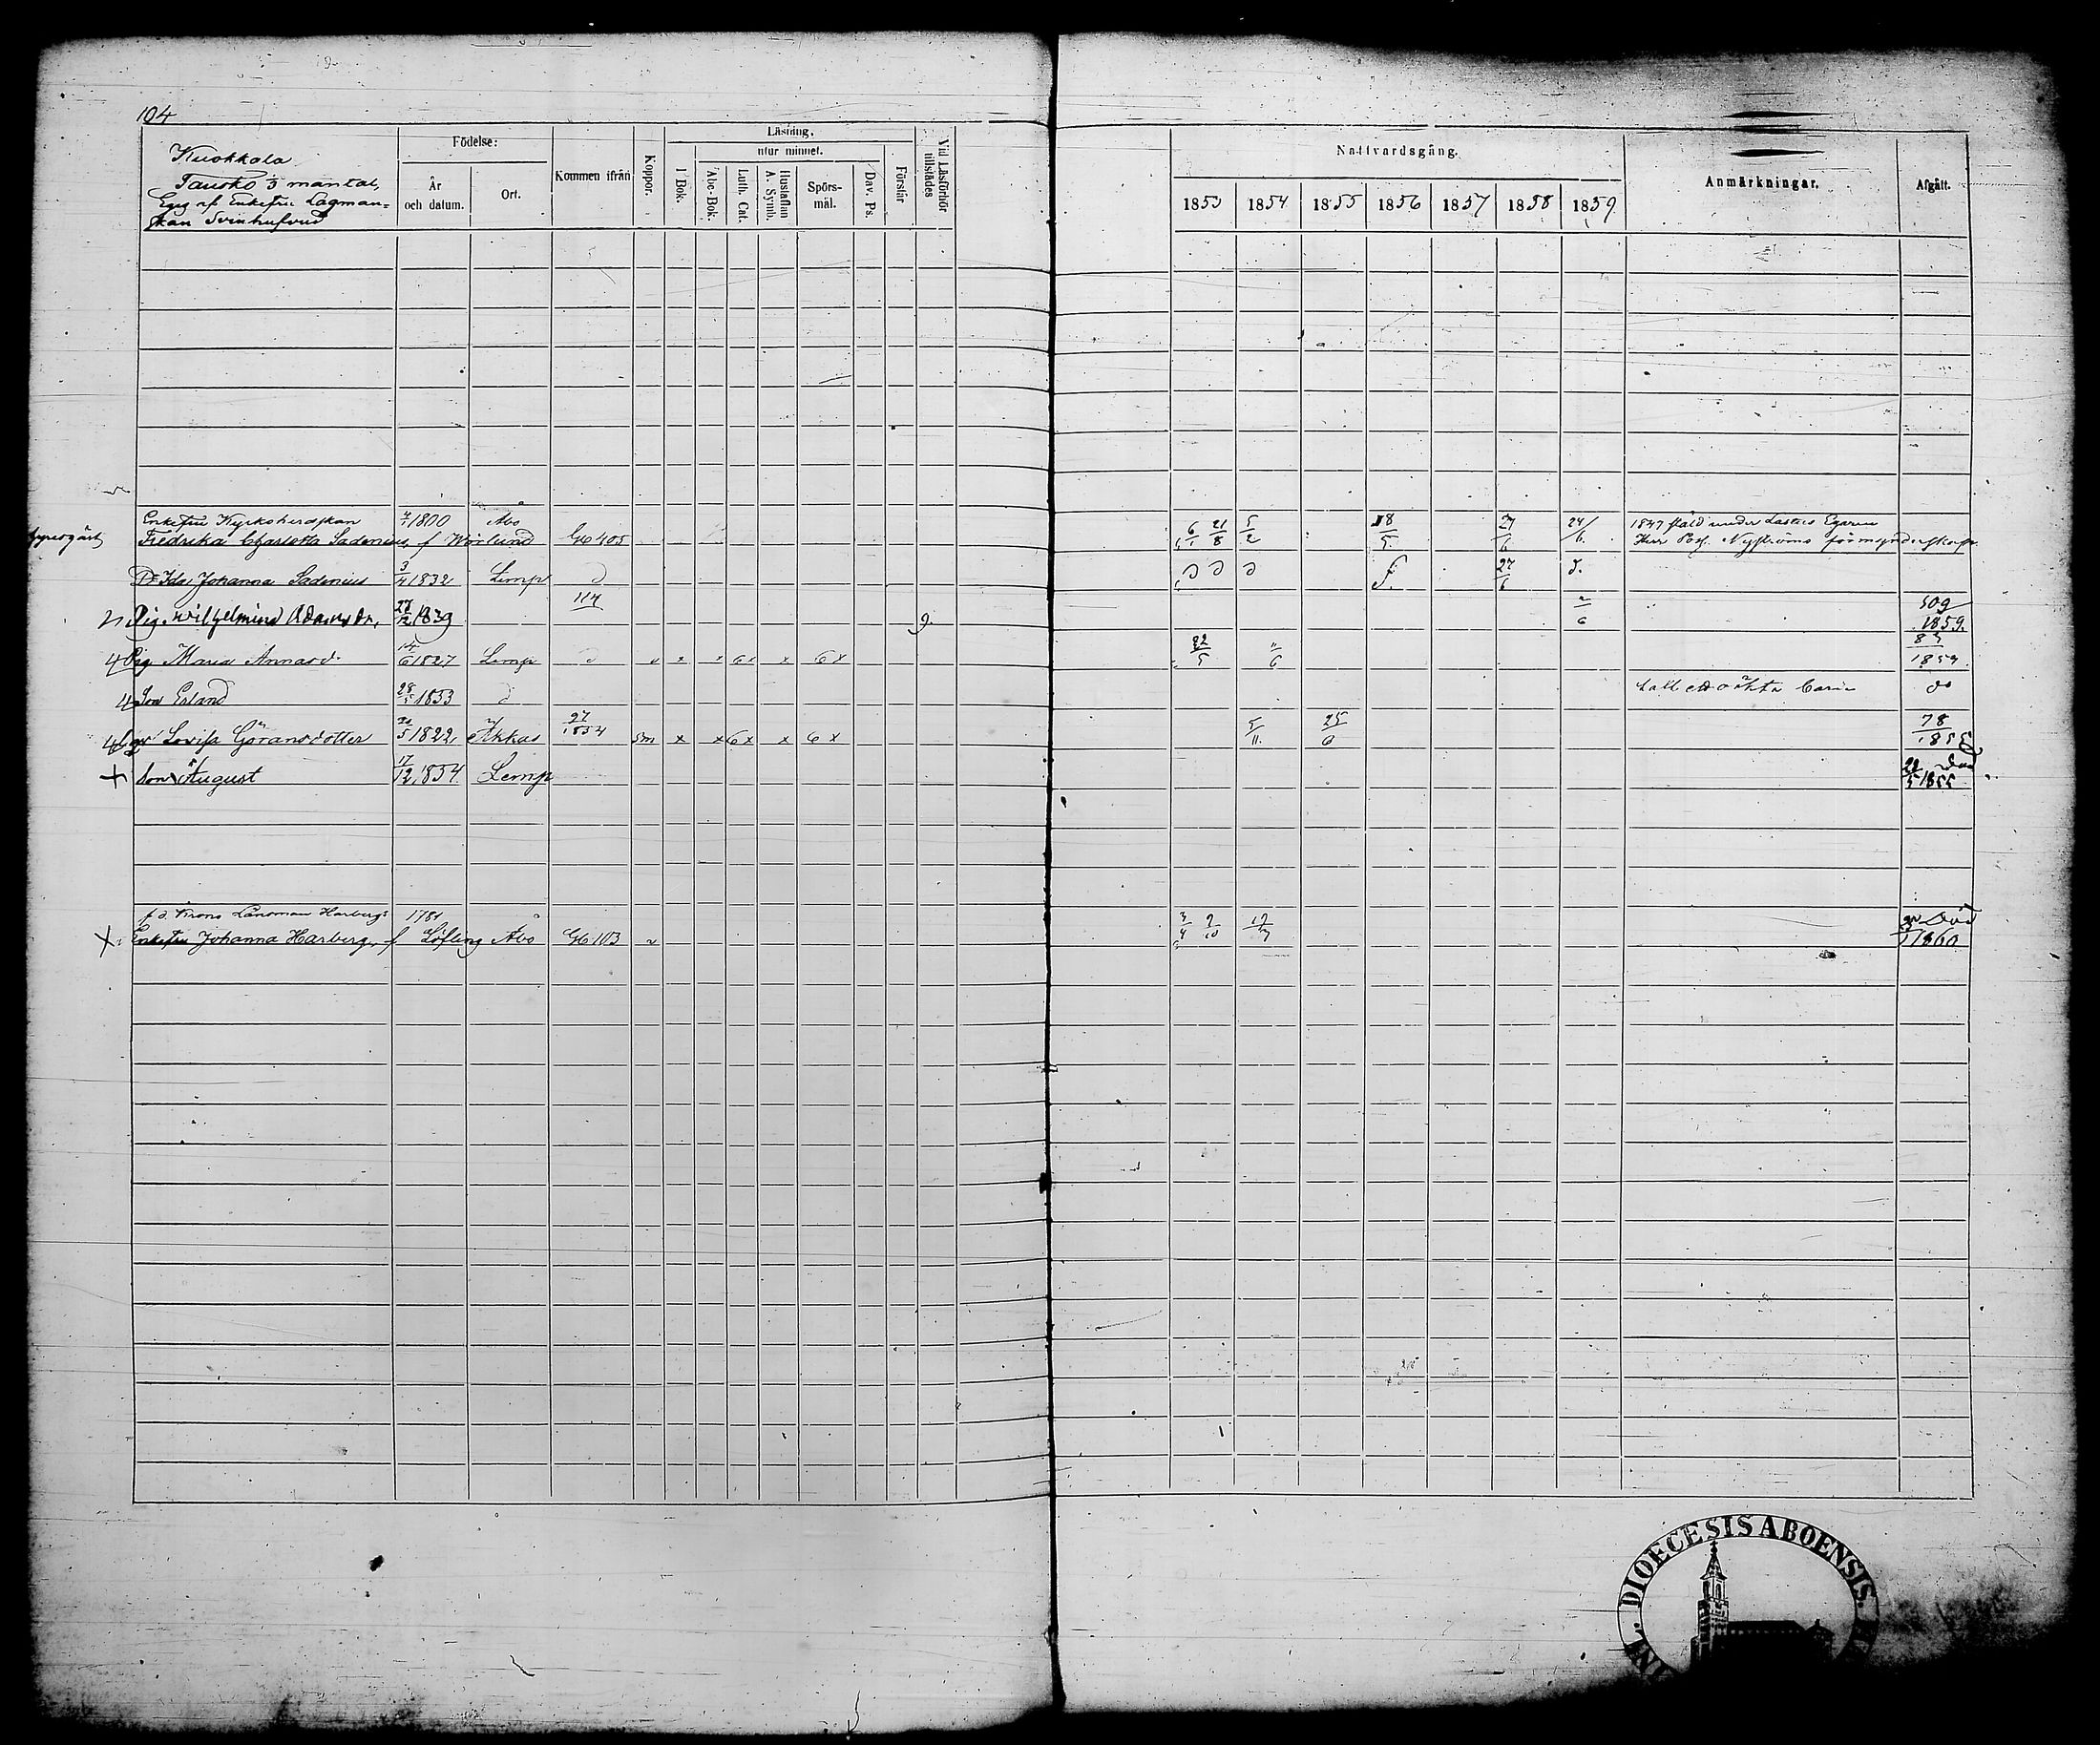 104
Kuokkala
Tausko 1/3 mantal,
Eges af Enkefru Lagman=
skan Svinhufvud
Födelse:
År och datum.
Ort.
Kommen ifrån
Koppor.
Läsning.
I Bok.
utur minnet.
Abc-Bok.
Luth. Cat.
Hustaflan A. Symb.
Spörsmål.
Dav. Ps.
Förstår
Vid Läsförhör tillstädes
Nattvardsgång.
1853 1854 1855 1856 1857 1858 1859
Anmärkningar.
Afgått.
Enkefru Kyrkoherdskan 1800 Åbo 1847 ståld under
Fredrika Charlotta Sadenius, f Wörlund 405 6/1 21/8 5/2 18/5 27/6 24/6 Herr Nyströms förmynderskap
Ida Johanna Sadenius 3/4 1832 Lemp d d d d f. 27/6 d.
Pig. Wilhelmina Adamsdr. 27/12 1839 114 9. 2/6 509/1859.
4 Pig Maria Annasd. 14/6 1827 Lemp d x x 6x x 6x 22/5 11/6 83/1853
4 Son Erland 28/5 1853 d do
Lovisa Göransdotter 5 1822 Akkas 27/1854 sm x x 6x x 6x 5/11. 25/6 78
+ Son August 17/12 1854 Lemp 22/5 1855 Död
f.d. Krono Länsman Harbergs 1781
X Enkefru Johanna Harberg, f Löfling Åbo 103 3/4 2/10 Död 1860
DIOECESIS ABOENSIS.